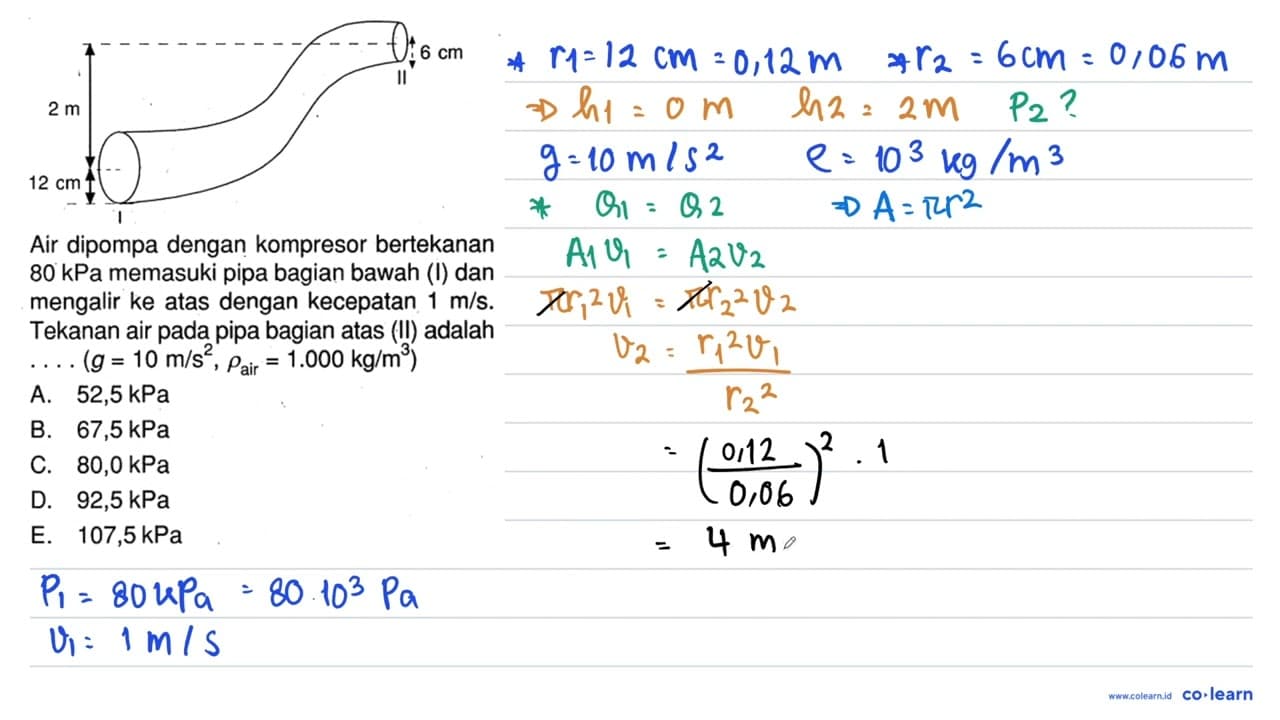 6 cm
II
2 m
12 cm
I
Air dipompa dengan kompresor bertekanan
80 kPa memasuki pipa bagian bawah (I) dan
mengalir ke atas dengan kecepatan 1 m/s.
Tekanan air pada pipa bagian atas (II) adalah
.... (g = 10 m/s², ρair = 1.000 kg/m³)
A. 52,5 kPa
B. 67,5 kPa
C. 80,0 kPa
D. 92,5 kPa
E. 107,5 kPa
P₁ = 80 kPa = 80 · 10³ Pa
v₁ = 1 m/s
* r1 = 12 cm = 0,12 m * r₂ = 6 cm = 0,06 m
⇒ h₁ = 0 m h2 = 2m P₂?
g = 10 m/s² ρ = 10³ kg/m³
* Q₁ = Q2 ⇒ A = πr²
A₁v₁ = A₂v₂
πr₁²v₁ = πr₂²v₂
v₂ = r₁²v₁
r₂²
= (0,12 / 0,06)² . 1
= 4 m
www.colearn.id co·learn